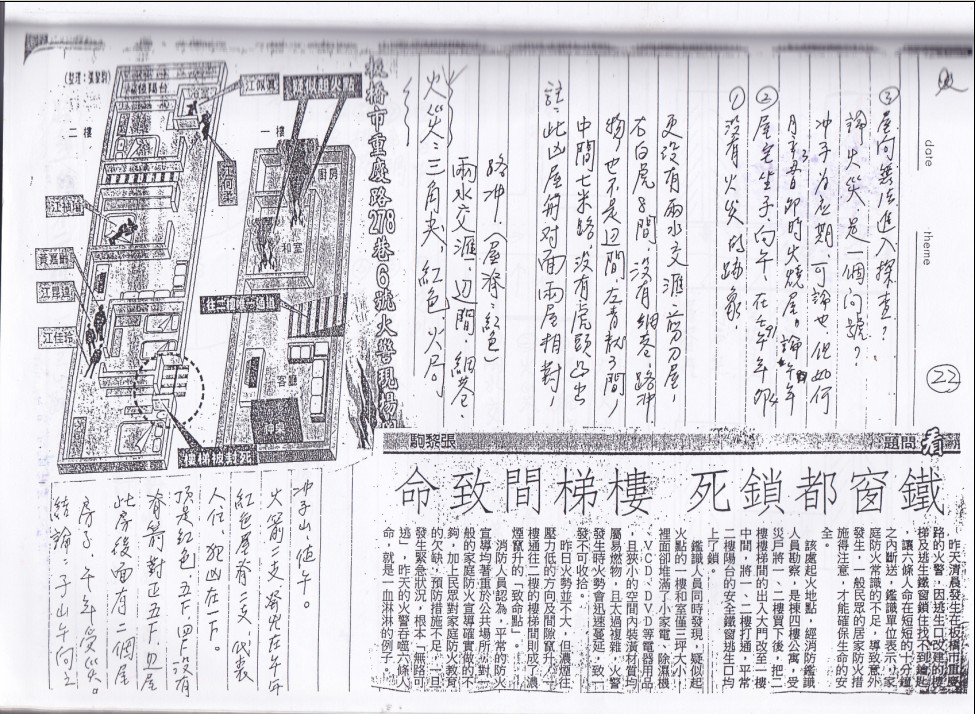 date
theme
22
③屋向無法進入探查?
論火災是一個問號?
沖子為應期,可論也但如何
②屋宅坐子向午,在壬午年
①沒有火災的跡象,
更沒有兩水交滙,剪刀屋,
右白虎8間,沒有細巷,路沖
物也不是边間,左青
中間七米路,沒有虎頭凸出
註:此凶屋與对面兩屋相對,
路沖(屋脊:紅色)
兩水交滙,边間,細巷,
火災:三角夾,紅色,火局
板橋市重慶路278巷6號火警現場
疑似起火點
一樓
廚房
和室
客廳
二樓
陽台
樓梯被封死
江佳玲
看問題
張黎駒
鐵窗都鎖死 樓梯間致命
昨天清晨發生在板橋市重慶
路的火警,因逃生口改建的樓
梯及逃生鐵窗鎖住找不到鑰匙
,讓六條人命在短短的十分鐘
之內斷送,鑑識單位表示,家
庭防火常識的不足,導致意外
發生,一般民眾的居家防火措
施得注意,才能確保生命的安
全。
該處起火地點,經消防鑑識
人員勘察,是棟四樓公寓,受
災戶將一、二樓買下後,把二
樓樓梯間的出入大門改至一樓
中間,將一、二樓打通,平常
二樓陽台的安全鐵窗逃生口均
上了鎖。
鑑識人員同時發現,疑似起
火點的一樓和室僅三坪大小,
裡面卻堆滿了小家電、除濕機
、VCD、DVD等電器用品
,且狹小的空間內裝潢材質均
屬易燃物,且太過複雜,火警
發生時火勢會迅速蔓延,致一
發不可收拾。
昨日火勢並不大,但濃煙往
壓力低的方向及間隙竄升,一
樓通往二樓的樓梯間則成了濃
煙竄升的「致命點」。
消防人員認為,平常的防火
宣導都著重於公共場所,對一
般的家庭防火宣導確實做的不
夠,加上民眾對家庭防火教育
的欠缺,預防措施不足,一旦
發生緊急狀況,根本「無路可
逃」,昨天的火警吞噬六條人
命,就是一血淋淋的例子。
沖子山值午。
火箭二支發火在午年
紅色屋脊2支,代表
人住,犯凶在一下。
頂是紅色五下,四下沒有
脊箭對正五下,四屋
此房後面有二個屋
房子,午年受災。
結論:子山午向之